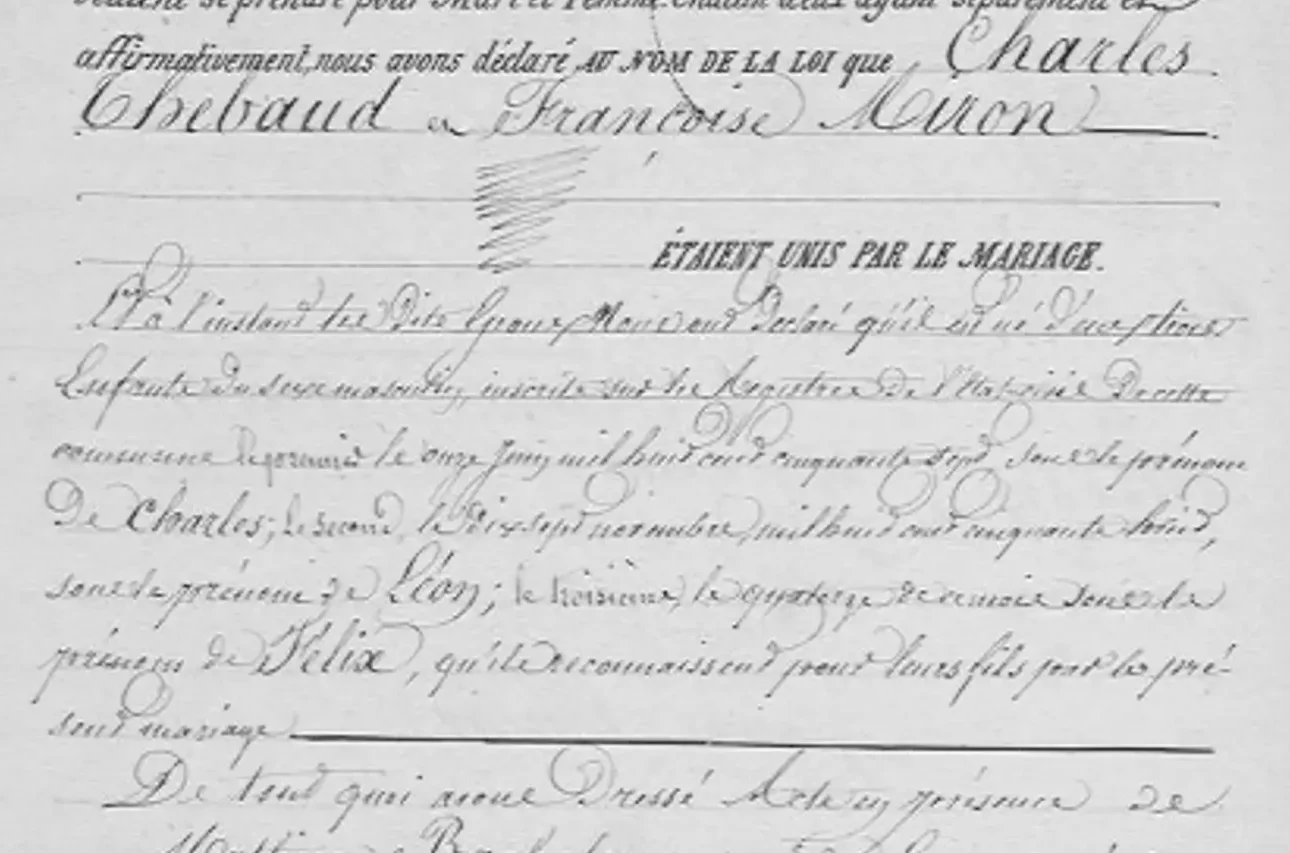 voulaient se prendre pour Mari et Femme chacun d'eux ayant séparément et
affirmativement, nous avons déclaré AU NOM DE LA LOI que Charles
Thebaud et Françoise Miron
ÉTAIENT UNIS PAR LE MARIAGE.
Et à l'instant les Dits Epoux Nous ont Declaré qu'il est né d'eux trois
Enfants du sexe masculin, inscrits sur les Registres de l'Etat-civil De cette
commune le premier le onze Juin mil huit cent cinquante sept sous le prénom
De Charles; le second, le dix sept novembre mil huit cent cinquante huit,
sous le prénom de Léon; le troisième, le quatorze de ce mois sous le
prénom de Félix, qu'ils reconnaissent pour leurs fils par le pré-
sent mariage
De tout quoi avons Dressé Acte en présence de